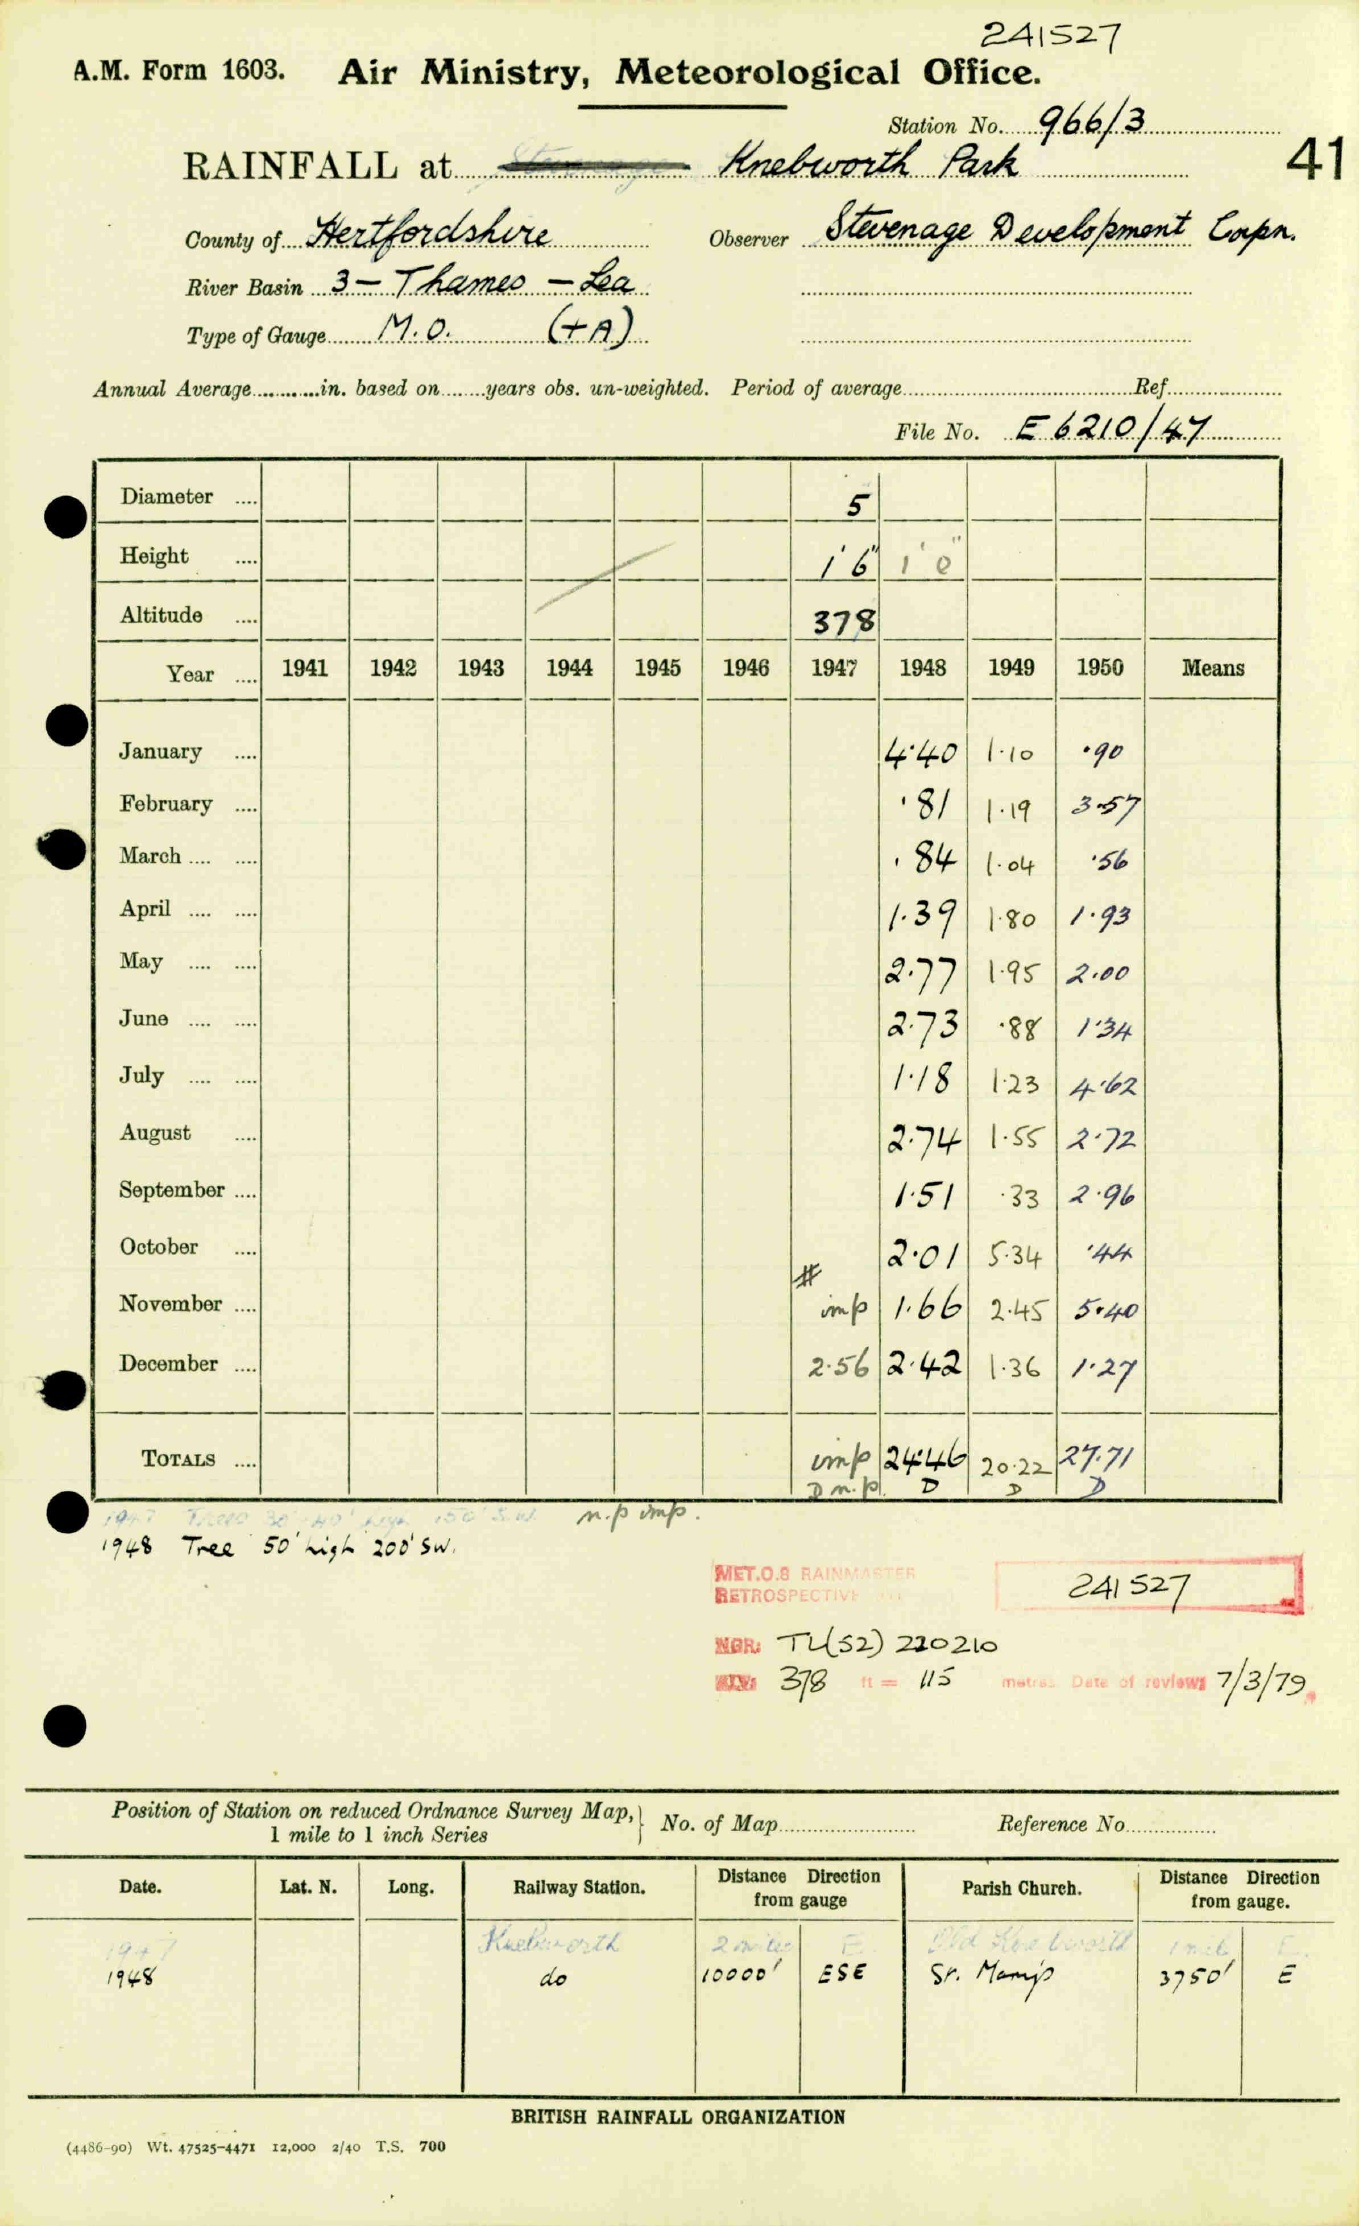 241527
A.M. Form 1603. Air Ministry, Meteorological Office.
Station No. 966/3
RAINFALL at Stevenage Knebworth Park
41
County of Hertfordshire Observer Stevenage Development Corpn.
River Basin 3 - Thames - Lea
Type of Gauge M.O. (+A)
Annual Average in. based on years obs. un-weighted. Period of average Ref.
File No. E 6210/47
Diameter 5
Height 1' 6" 1' 0"
Altitude 378
Year 1941 1942 1943 1944 1945 1946 1947 1948 1949 1950 Means
January 4.40 1.10 .90
February .81 1.19 3.57
March .84 1.04 .56
April 1.39 1.80 1.93
May 2.77 1.95 2.00
June 2.73 .88 1.34
July 1.18 1.23 4.62
August 2.74 1.55 2.72
September 1.51 .33 2.96
October 2.01 5.34 .44
November # imp 1.66 2.45 5.40
December 2.56 2.42 1.36 1.27
TOTALS imp 24.46 20.22 27.71
D n.p. D D D
1947 Trees 30'-40' high 150' S.W. n.p imp.
1948 Tree 50' high 200' SW.
MET.O.8 RAINMASTER
RETROSPECTIVE
241527
NGR: TL(52) 220210
378 ft = 115 metres Date of review: 7/3/79
Position of Station on reduced Ordnance Survey Map, } No. of Map Reference No.
1 mile to 1 inch Series
Date. Lat. N. Long. Railway Station. Distance Direction from gauge Parish Church. Distance Direction from gauge.
1947 Knebworth 2 miles E. Old Knebworth 1 mile E.
1948 do 10000' ESE St. Mary's 3750' E
BRITISH RAINFALL ORGANIZATION
(4486-90) Wt. 47525-4471 12,000 2/40 T.S. 700